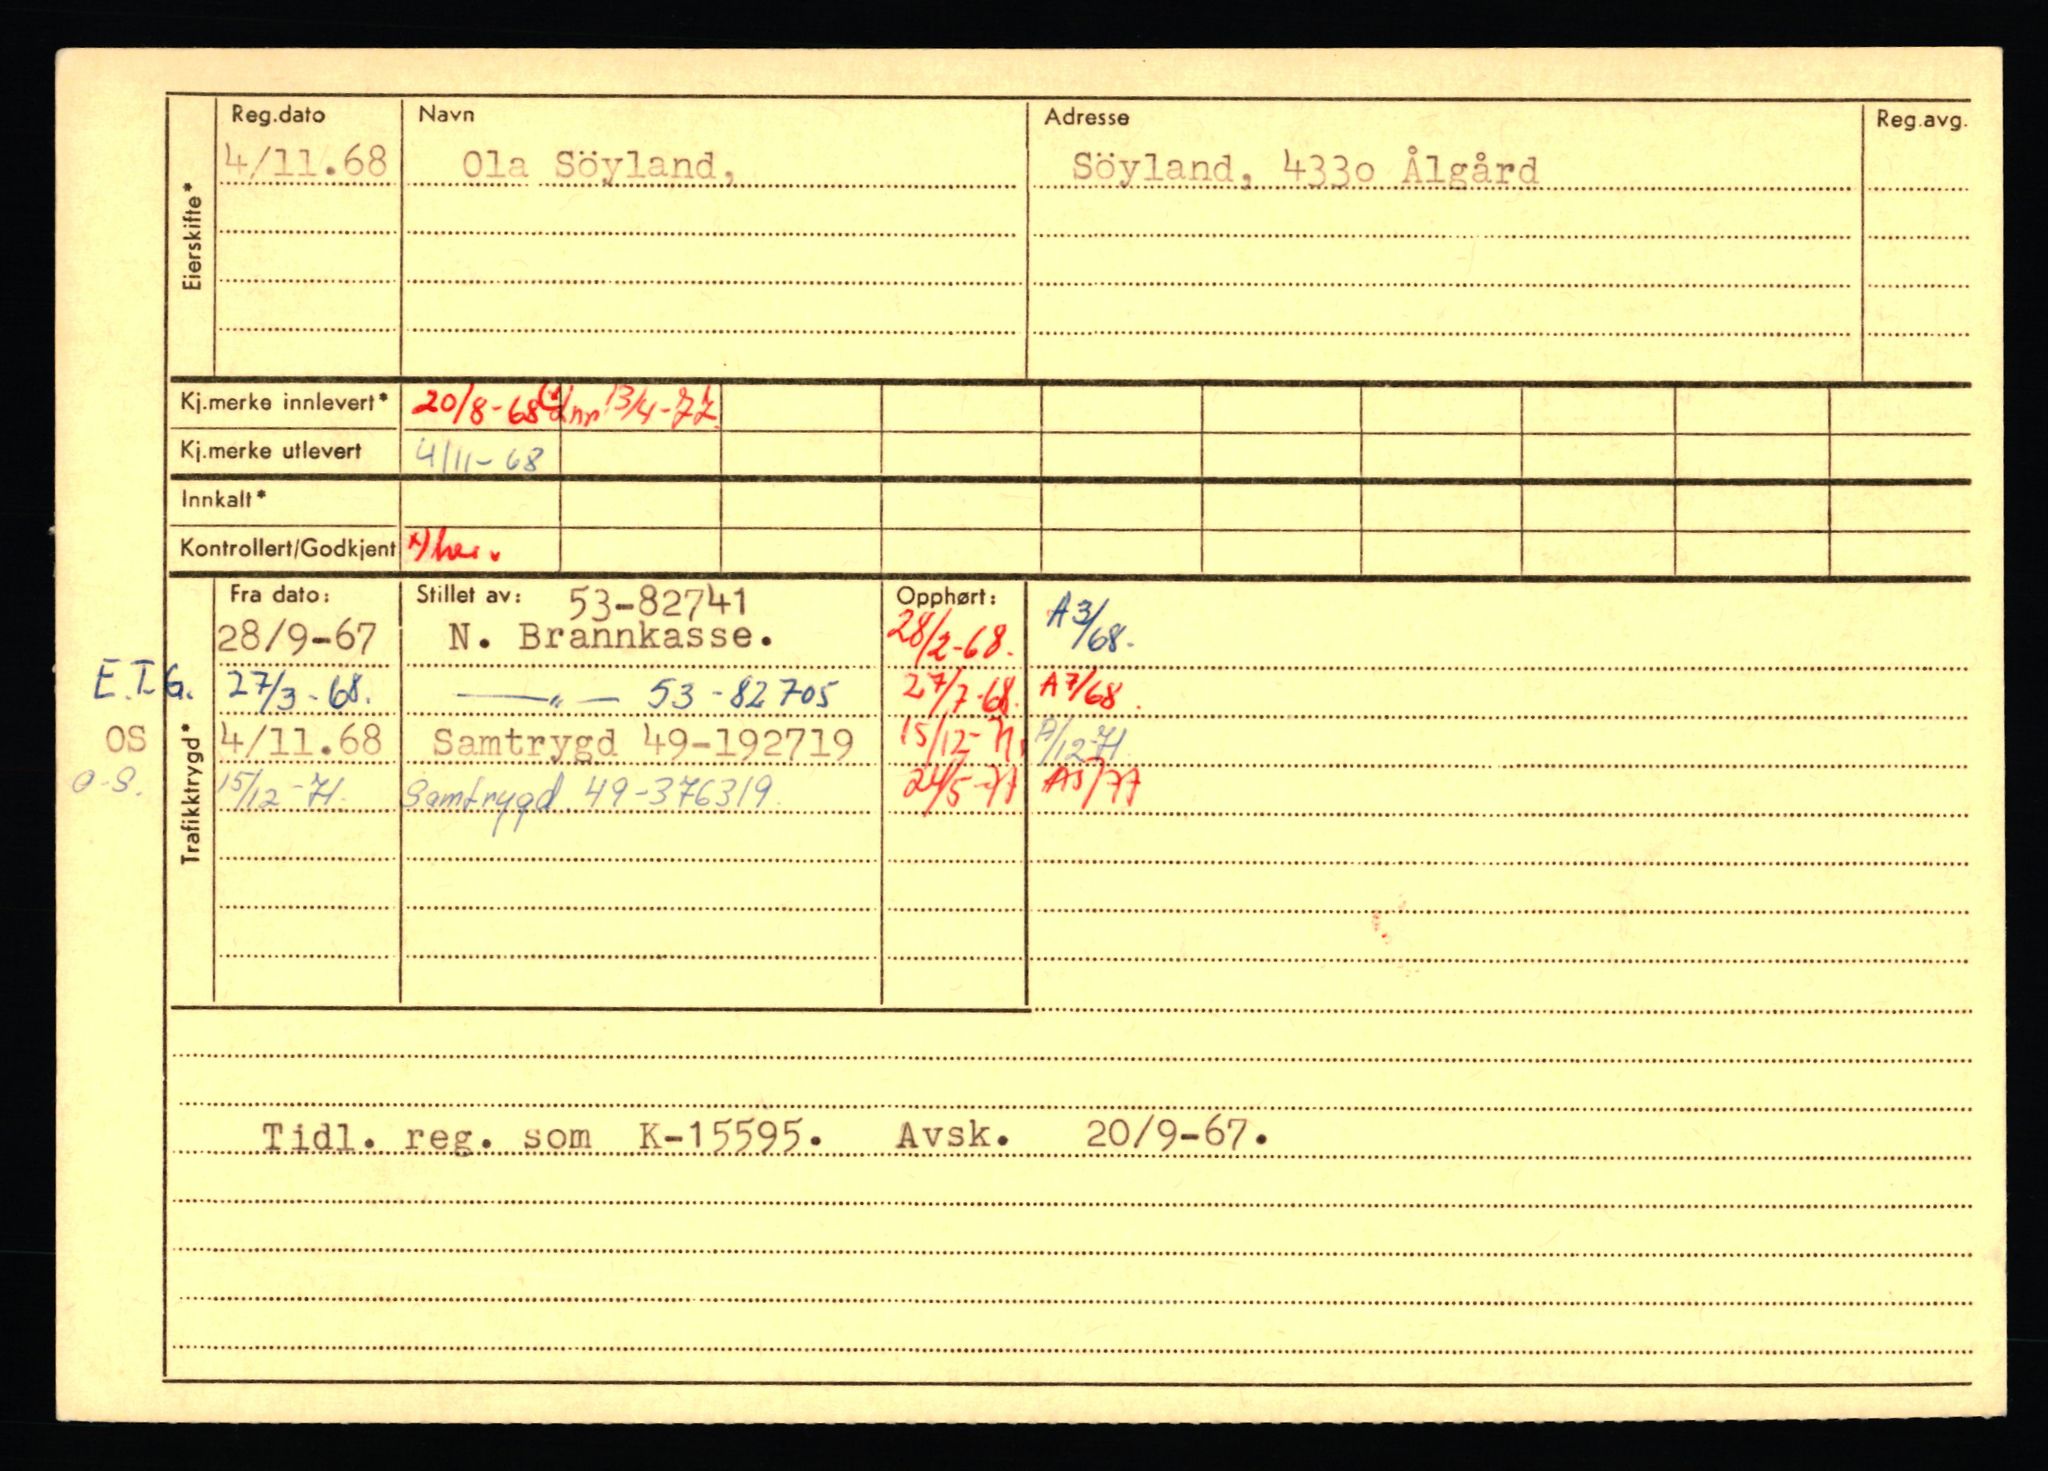 Eierskifte*
Reg.dato Navn Adresse Reg.avg.
4/11.68 Ola Söyland, Söyland, 433o Ålgård
Kj.merke innlevert* 20/8-68 13/4-77.
Kj.merke utlevert 4/11-68
Innkalt*
Kontrollert/Godkjent
Trafikktrygd*
Fra dato: Stillet av: 53-82741 Opphørt:
28/9-67 N. Brannkasse. 28/2-68. A 3/68.
E.T.G. 27/3-68. —"— 53-82705 27/7-68. A7/68.
OS 4/11.68 Samtrygd 49-192719 15/12-71. A/12-71.
O.S. 15/12-71. Samtrygd 49-376319. 24/5-77 A5/77
Tidl. reg. som K-15595. Avsk. 20/9-67.